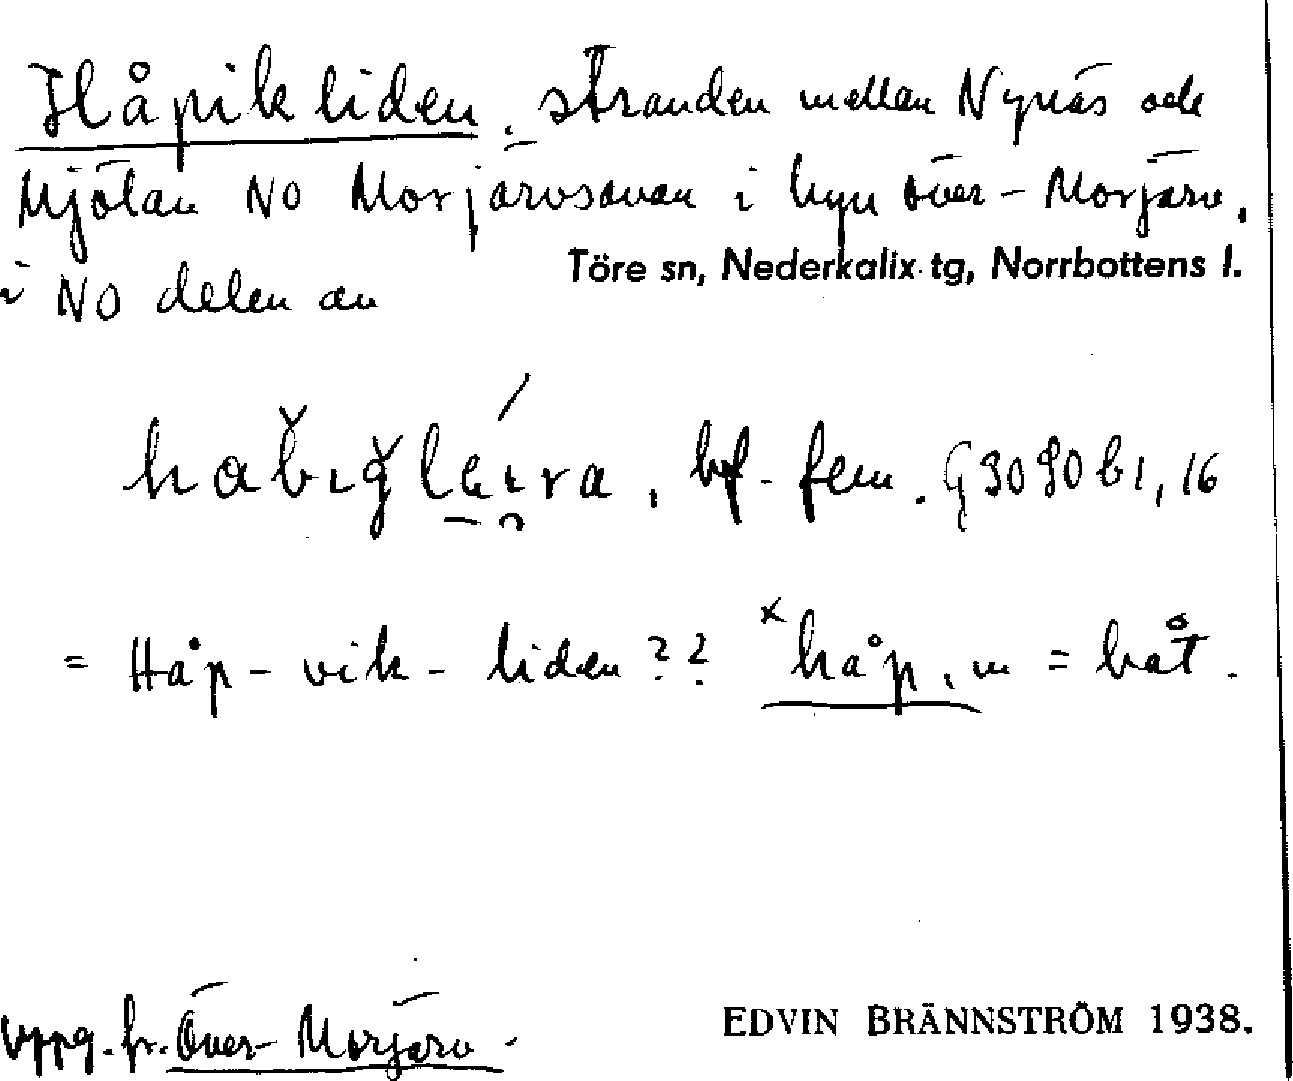 Håpikliden, stranden mellan Nynäs och
Mjölan NO Morjärvsavan i byn Över-Morjärv.
Töre sn, Nederkalix tg, Norrbottens l.
i NO delen av
bf. fem. G 3090 b1, 16
= Håp-vik-liden?? ˣhåp, m = båt.
Uppg. fr. Över-Morjärv.
EDVIN BRÄNNSTRÖM 1938.